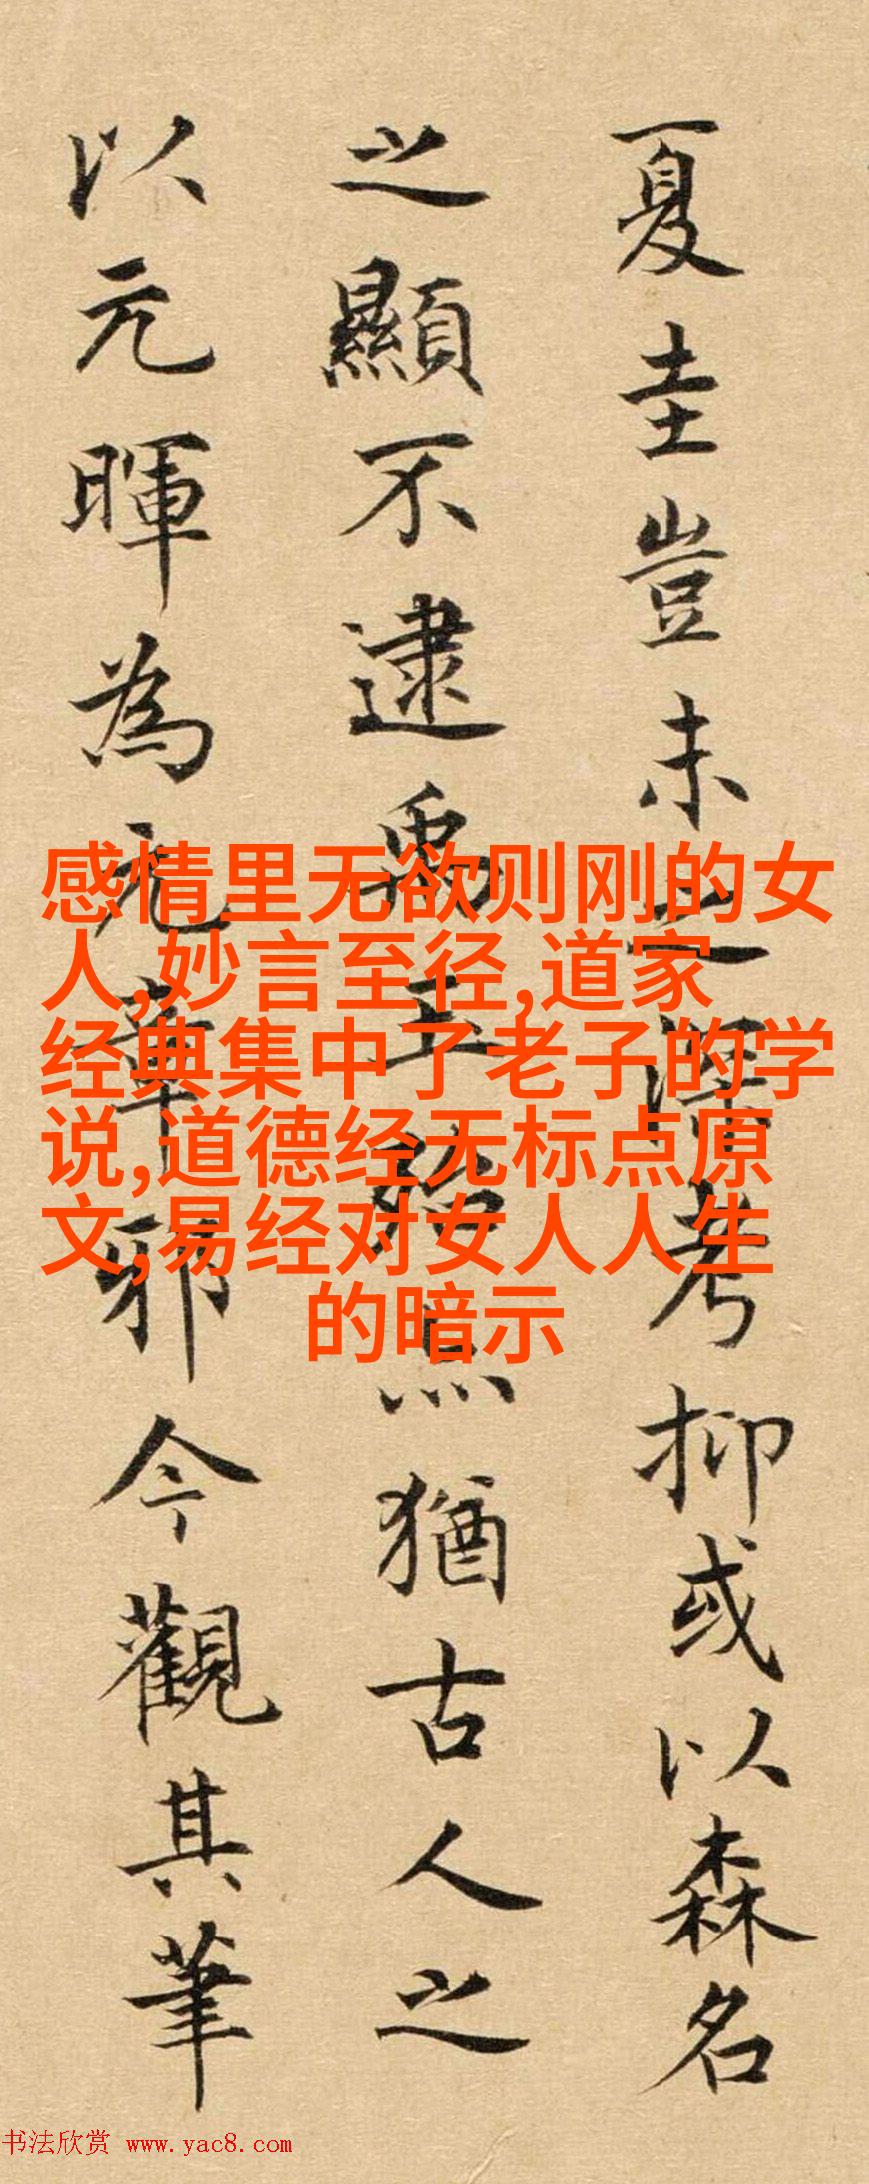 夏圭豈未之深考抑或以森名
之顯不逮禹玉殆亦猶古人之
以元暉為元章邪今觀其筆
感情里无欲则刚的女
人,妙言至径,道家
经典集中了老子的学
说,道德经无标点原
文,易经对女人人生
的暗示
书法欣赏 www.yac8.com